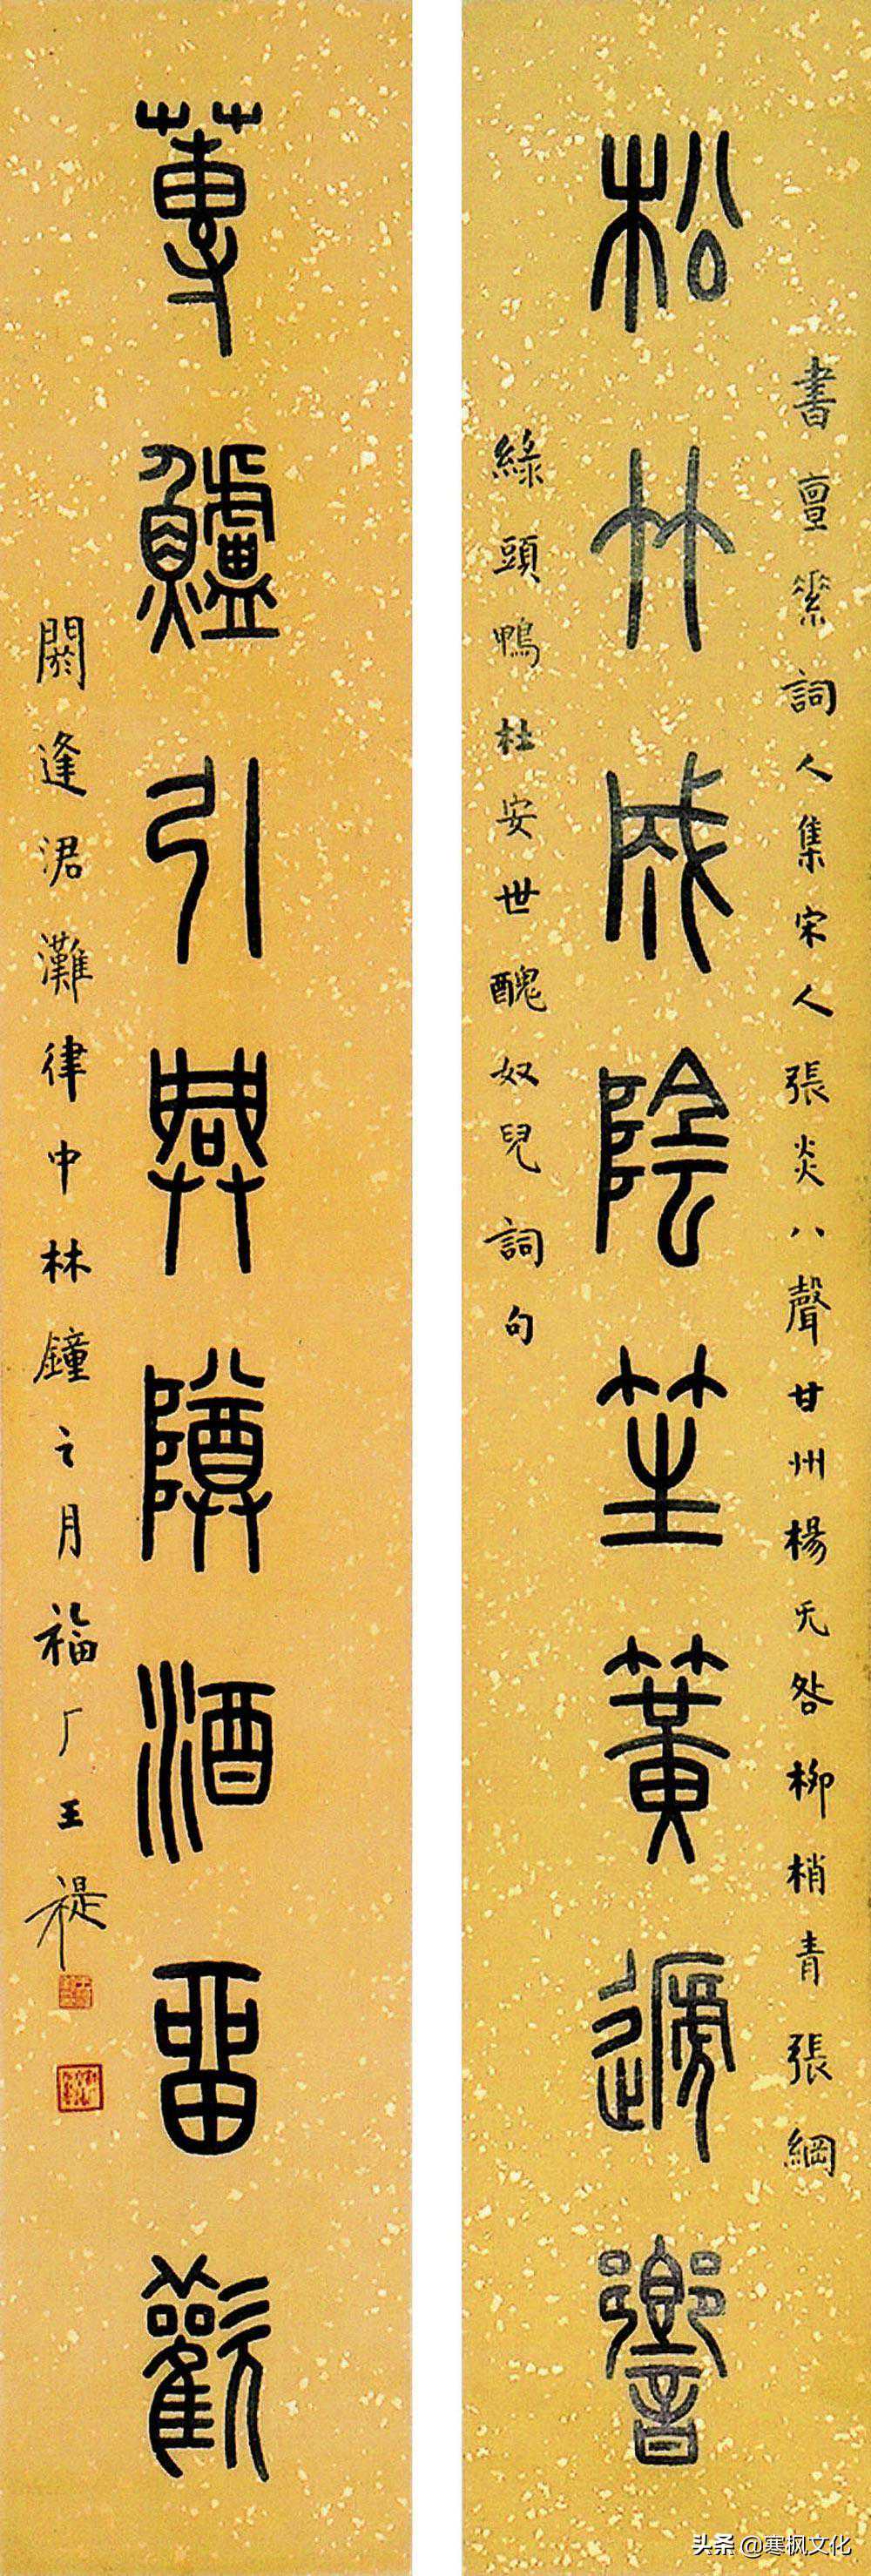 書亶素詞人集宋人張炎八聲甘州楊无咎柳梢青張綱
松竹成陰笙簧遞響
綠頭鴨杜安世醜奴兒詞句
蓴鱸引興尊酒畱歡
閼逢涒灘律中林鐘之月福厂王禔
头条 @寒枫文化